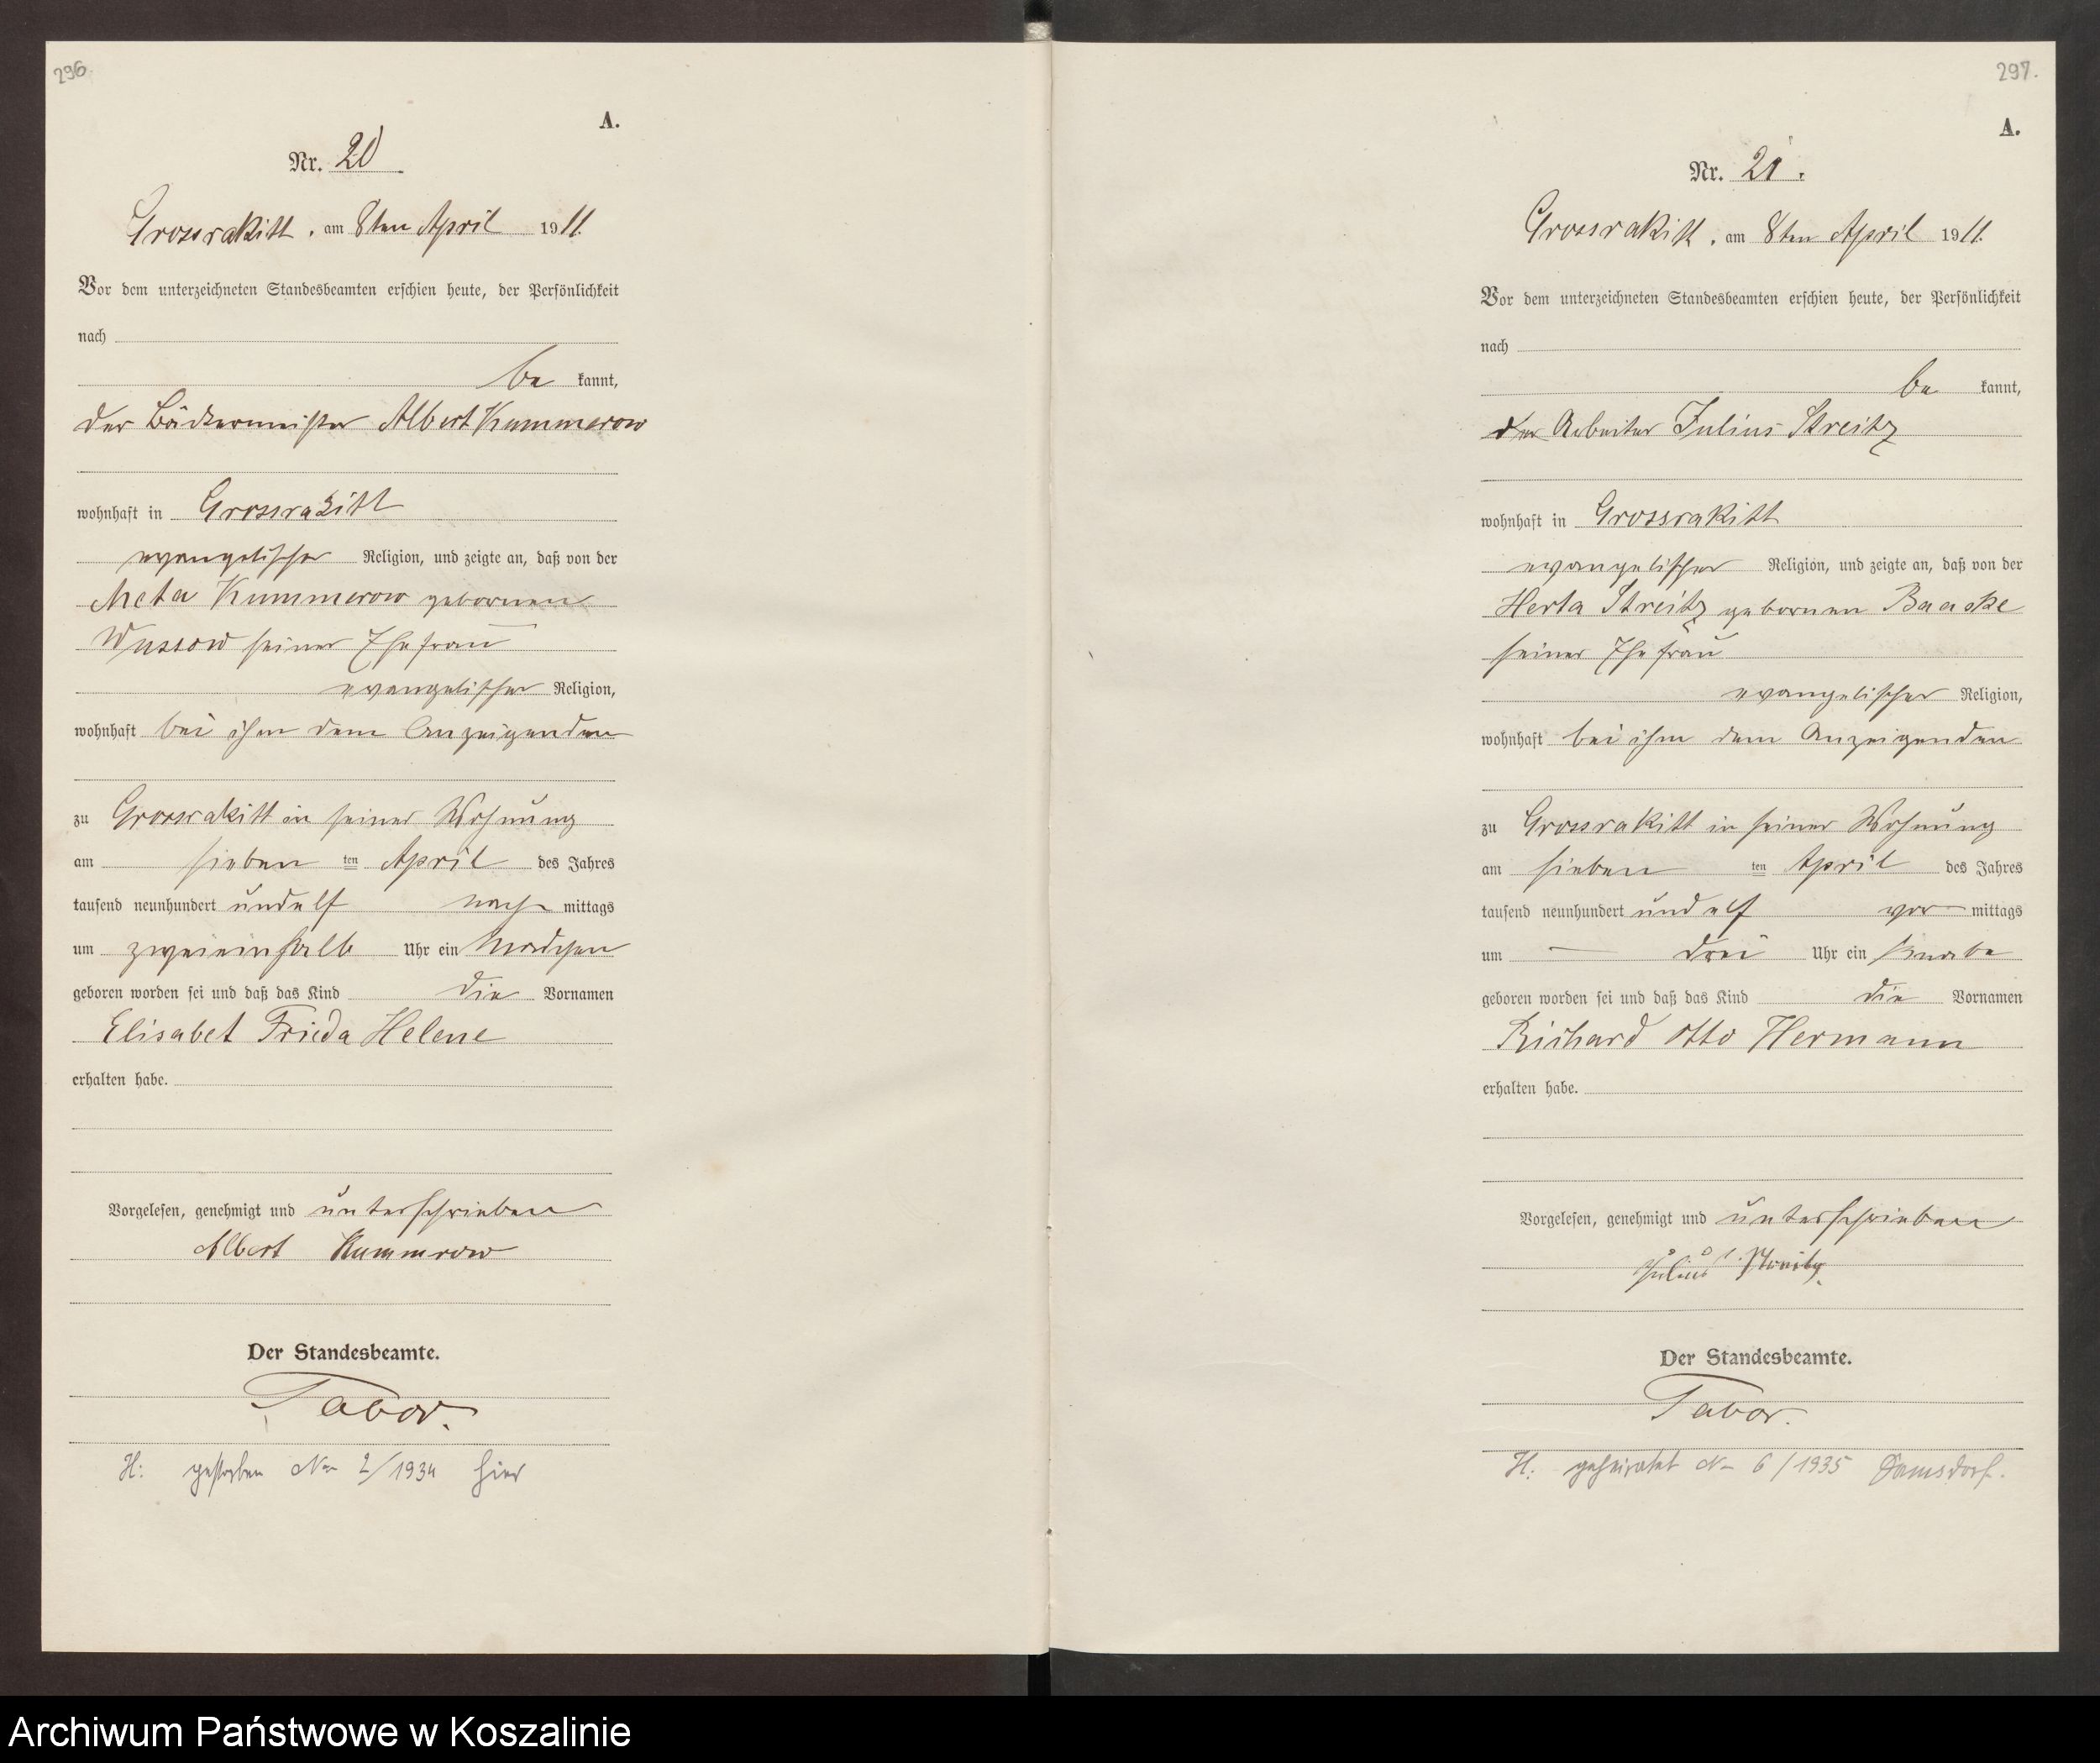 296.
A.
Nr. 20
Grossrakitt, am 8ten April 1911.
Vor dem unterzeichneten Standesbeamten erschien heute, der Persönlichkeit
nach
be kannt,
der Bäckermeister Albert Kummerow
wohnhaft in Grossrakitt
evangelischer Religion, und zeigte an, daß von der
Meta Kummerow gebornen
Wussow seiner Ehefrau
evangelischer Religion,
wohnhaft bei ihm dem Anzeigenden
zu Grossrakitt in seiner Wohnung
am sieben ten April des Jahres
tausend neunhundert und elf nach mittags
um zweieinhalb Uhr ein Mädchen
geboren worden sei und daß das Kind die Vornamen
Elisabet Frieda Helene
erhalten habe.
Vorgelesen, genehmigt und unterschrieben
Albert Kummrow
Der Standesbeamte.
Tabor.
H: gestorben No 2/1934 hier
297.
A.
Nr. 21.
Grossrakitt, am 8ten April 1911.
Vor dem unterzeichneten Standesbeamten erschien heute, der Persönlichkeit
nach
be kannt,
der Arbeiter Julius Streitz
wohnhaft in Grossrakitt
evangelischer Religion, und zeigte an, daß von der
Herta Streitz gebornen Baaske
seiner Ehefrau
evangelischer Religion,
wohnhaft bei ihm dem Anzeigenden
zu Grossrakitt in seiner Wohnung
am sieben ten April des Jahres
tausend neunhundert und elf vor mittags
um — drei Uhr ein Knabe
geboren worden sei und daß das Kind die Vornamen
Richard Otto Hermann
erhalten habe.
Vorgelesen, genehmigt und unterschrieben
Julius Streitz
Der Standesbeamte.
Tabor.
H: geheiratet No 6/1935
Archiwum Państwowe w Koszalinie